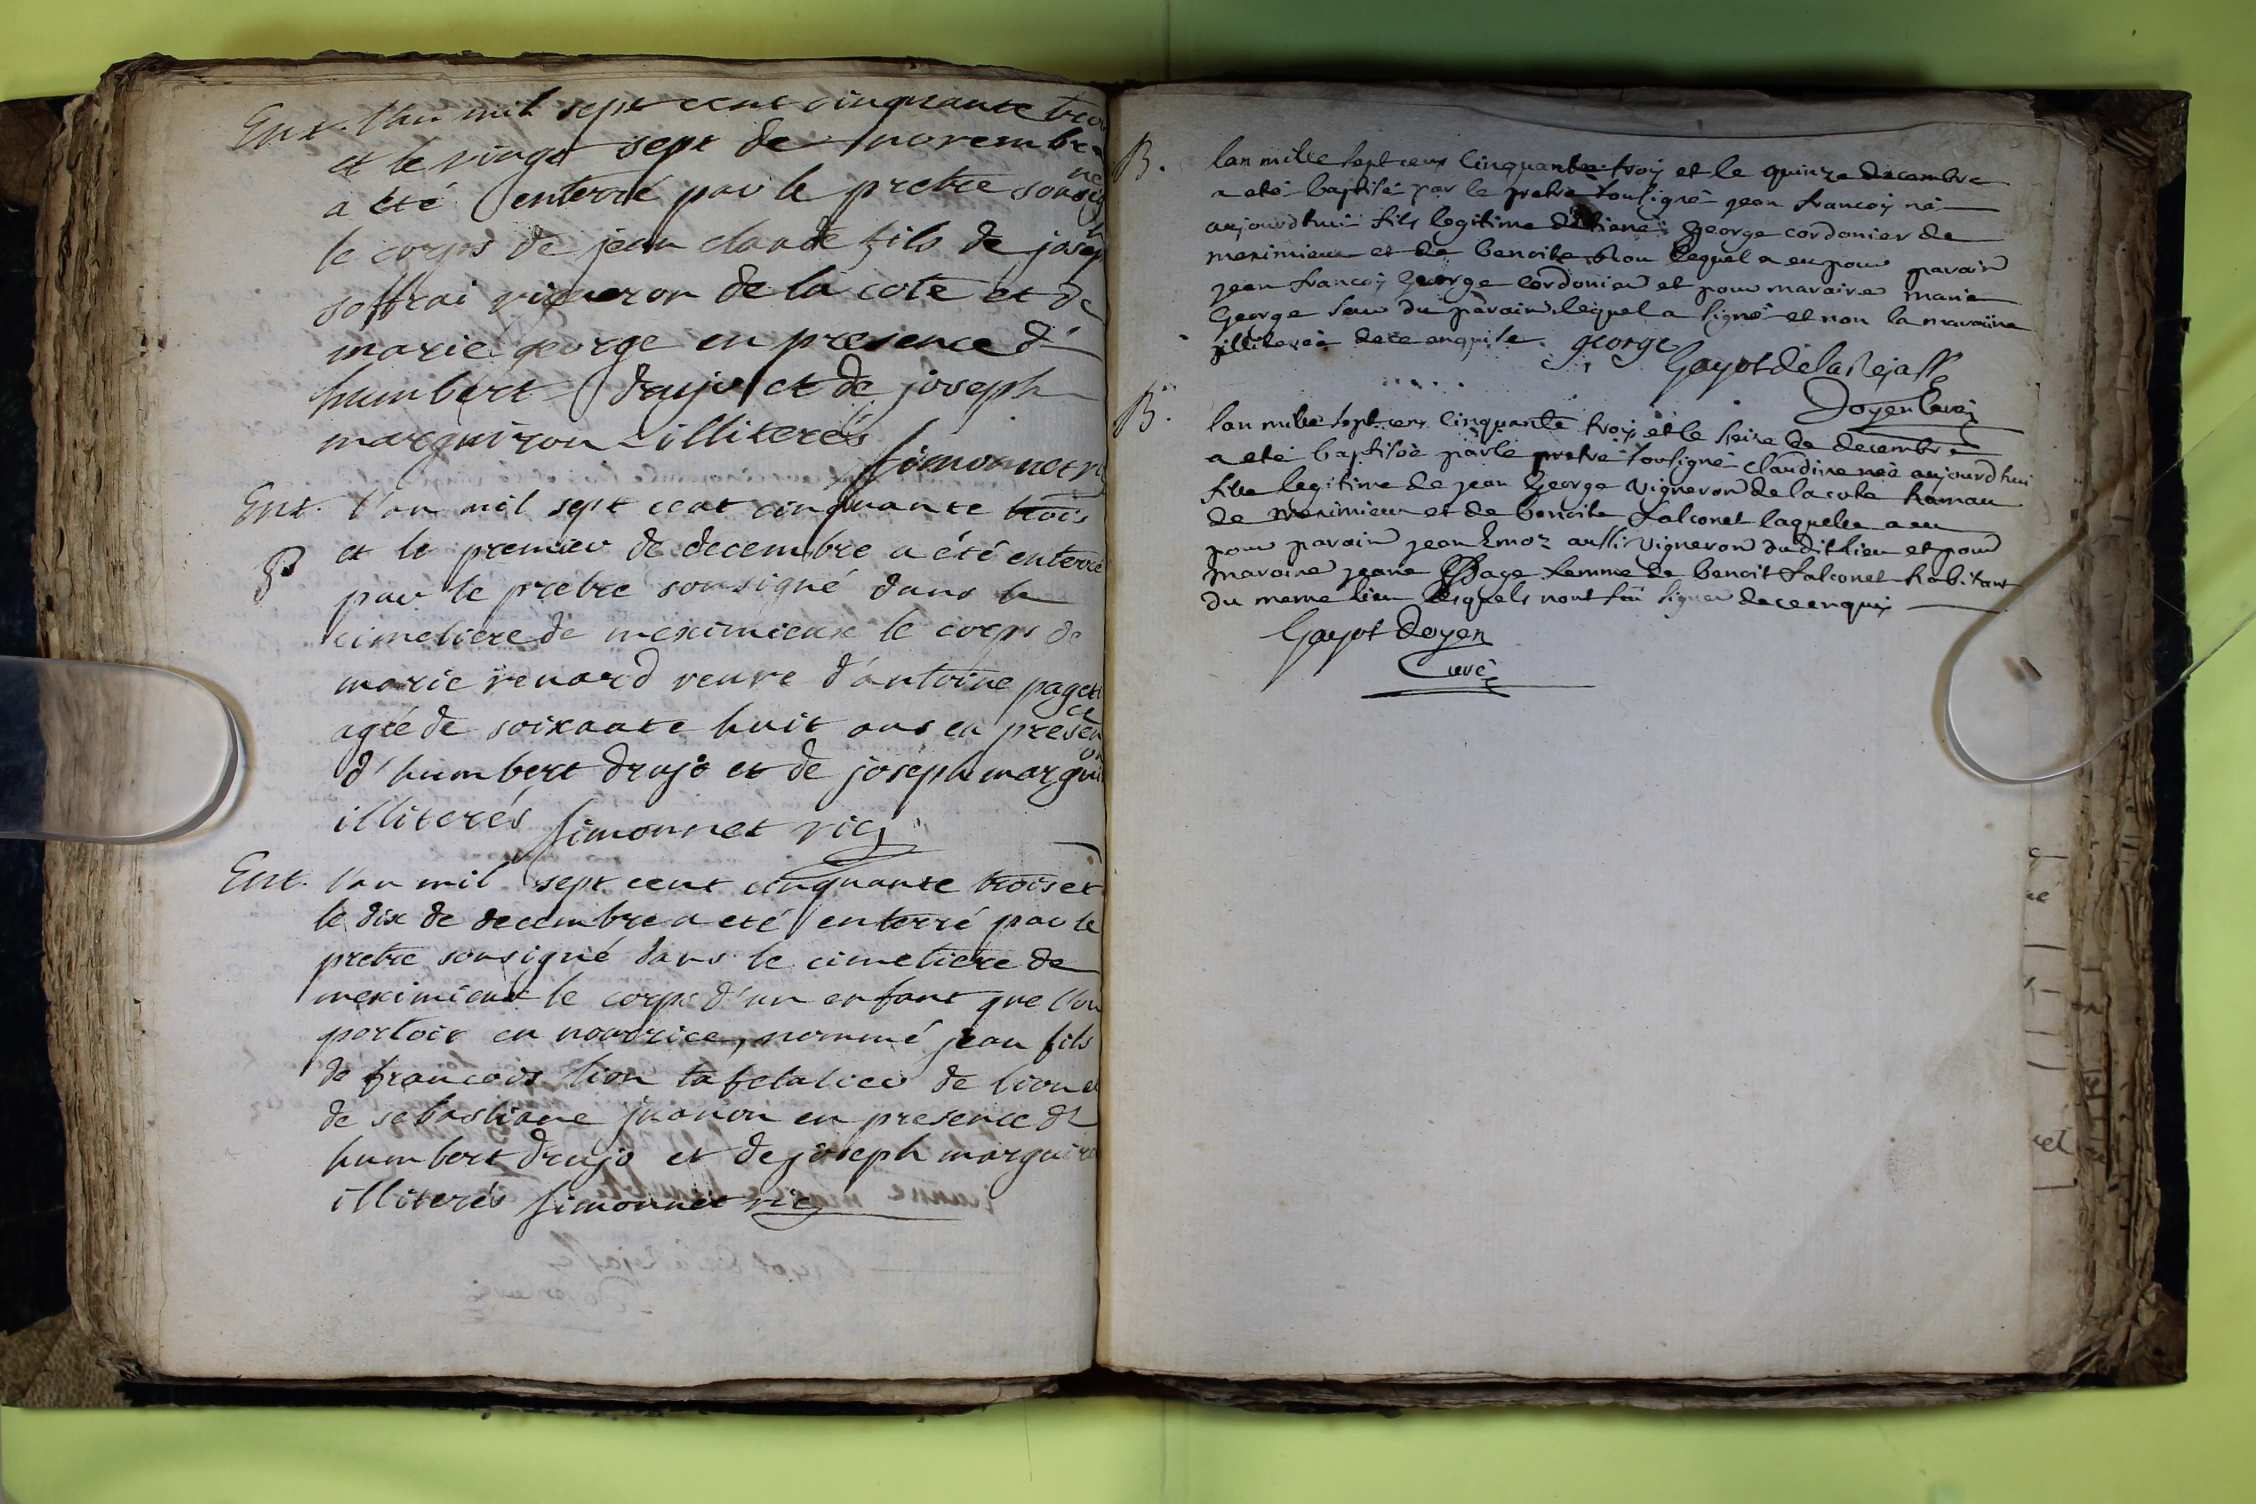 Ent. l'an mil sept cent cinquante trois
et le vingt sept de novembre
a été enterré par le pretre sousigné
le corps de jean claude fils de joseph
soffrai vigneron de la cote et de
marie george en presence d'
humbert drujo et de joseph
marguiron illiterés
Simonnet vic
Ent. l'an mil sept cent cinquante trois
et le premier de decembre a été enterré
par le pretre sousigné dans le
cimetiere de meximieux le corps de
marie renard veuve d'antoine paget
agée de soixante huit ans en presence
d'humbert drujo et de joseph marguiron
illiterés Simonnet vic
Ent. l'an mil sept cent cinquante trois et
le dix de decembre a eté enterré par le
pretre sousigné dans le cimetiere de
meximieux le corps d'un enfant que l'on
portoit en nourrice, nommé jean fils
de francois lion tafetatier de lion et
de sebastiane juanon en presence d'
humbert drujo et de joseph marguiron
illiterés Simonnet vic
B. lan mille sept cens cinquante troij et le quinze decembre
a eté baptisé par le pretre sousigné jean francoij né
aujourdhui fils legitime d'etiene george cordonier de
meximieux et de benoite lequel a eu pour parain
jean francoij george cordonier et pour maraine marie
george seur du parain lequel a signé et non la maraine
illiterée de ce enquise. george
Gayot de la Rejasse
Doyen Curé
B. lan mille sept cens cinquante troij et le seize de decembre
a eté baptisée par le pretre sousigné claudine née aujourdhui
fille legitime de jean george vigneron de la cote hamau
de meximieux et de benoite falconet laquelle a eu
pour parain jean aussi vigneron dudit lieu et pour
maraine jeane page femme de benoit falconet habitant
du meme lieu lesquels nont sçu signer de ce enquij
Gayot doyen
Curé